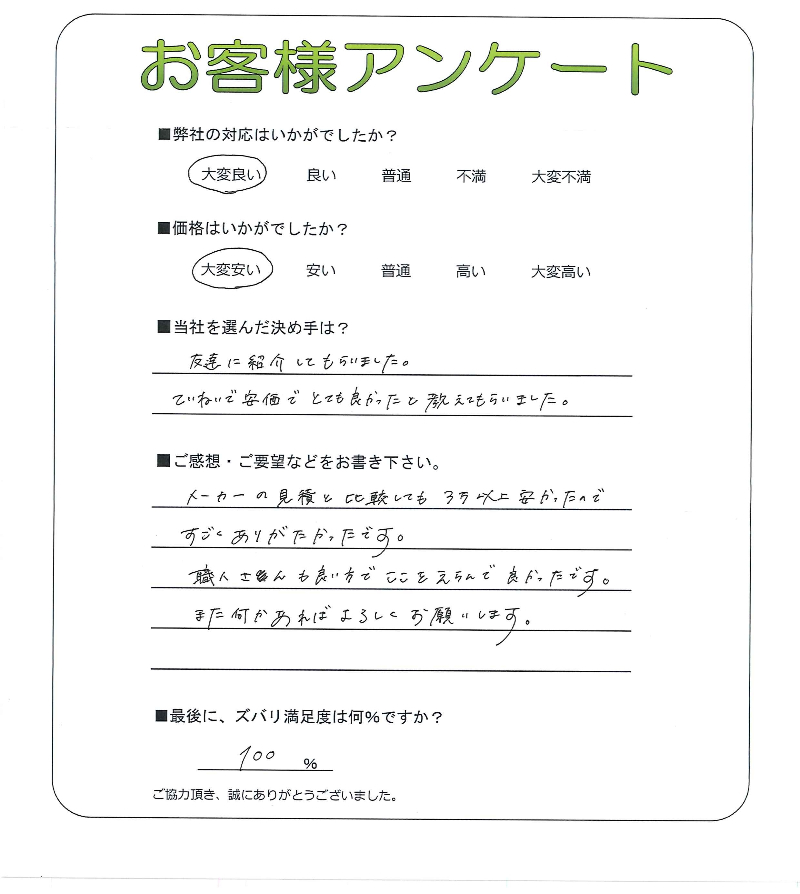 お客様アンケート
■弊社の対応はいかがでしたか？
大変良い 良い 普通 不満 大変不満
■価格はいかがでしたか？
大変安い 安い 普通 高い 大変高い
■当社を選んだ決め手は？
友達に紹介してもらいました。
ていねいで安価でとても良かったと教えてもらいました。
■ご感想・ご要望などをお書き下さい。
メーカーの見積と比較しても3万以上安かったので
すごくありがたかったです。
職人さんも良い方でここをえらんで良かったです。
また何かあればよろしくお願いします。
■最後に、ズバリ満足度は何%ですか？
100 %
ご協力頂き、誠にありがとうございました。